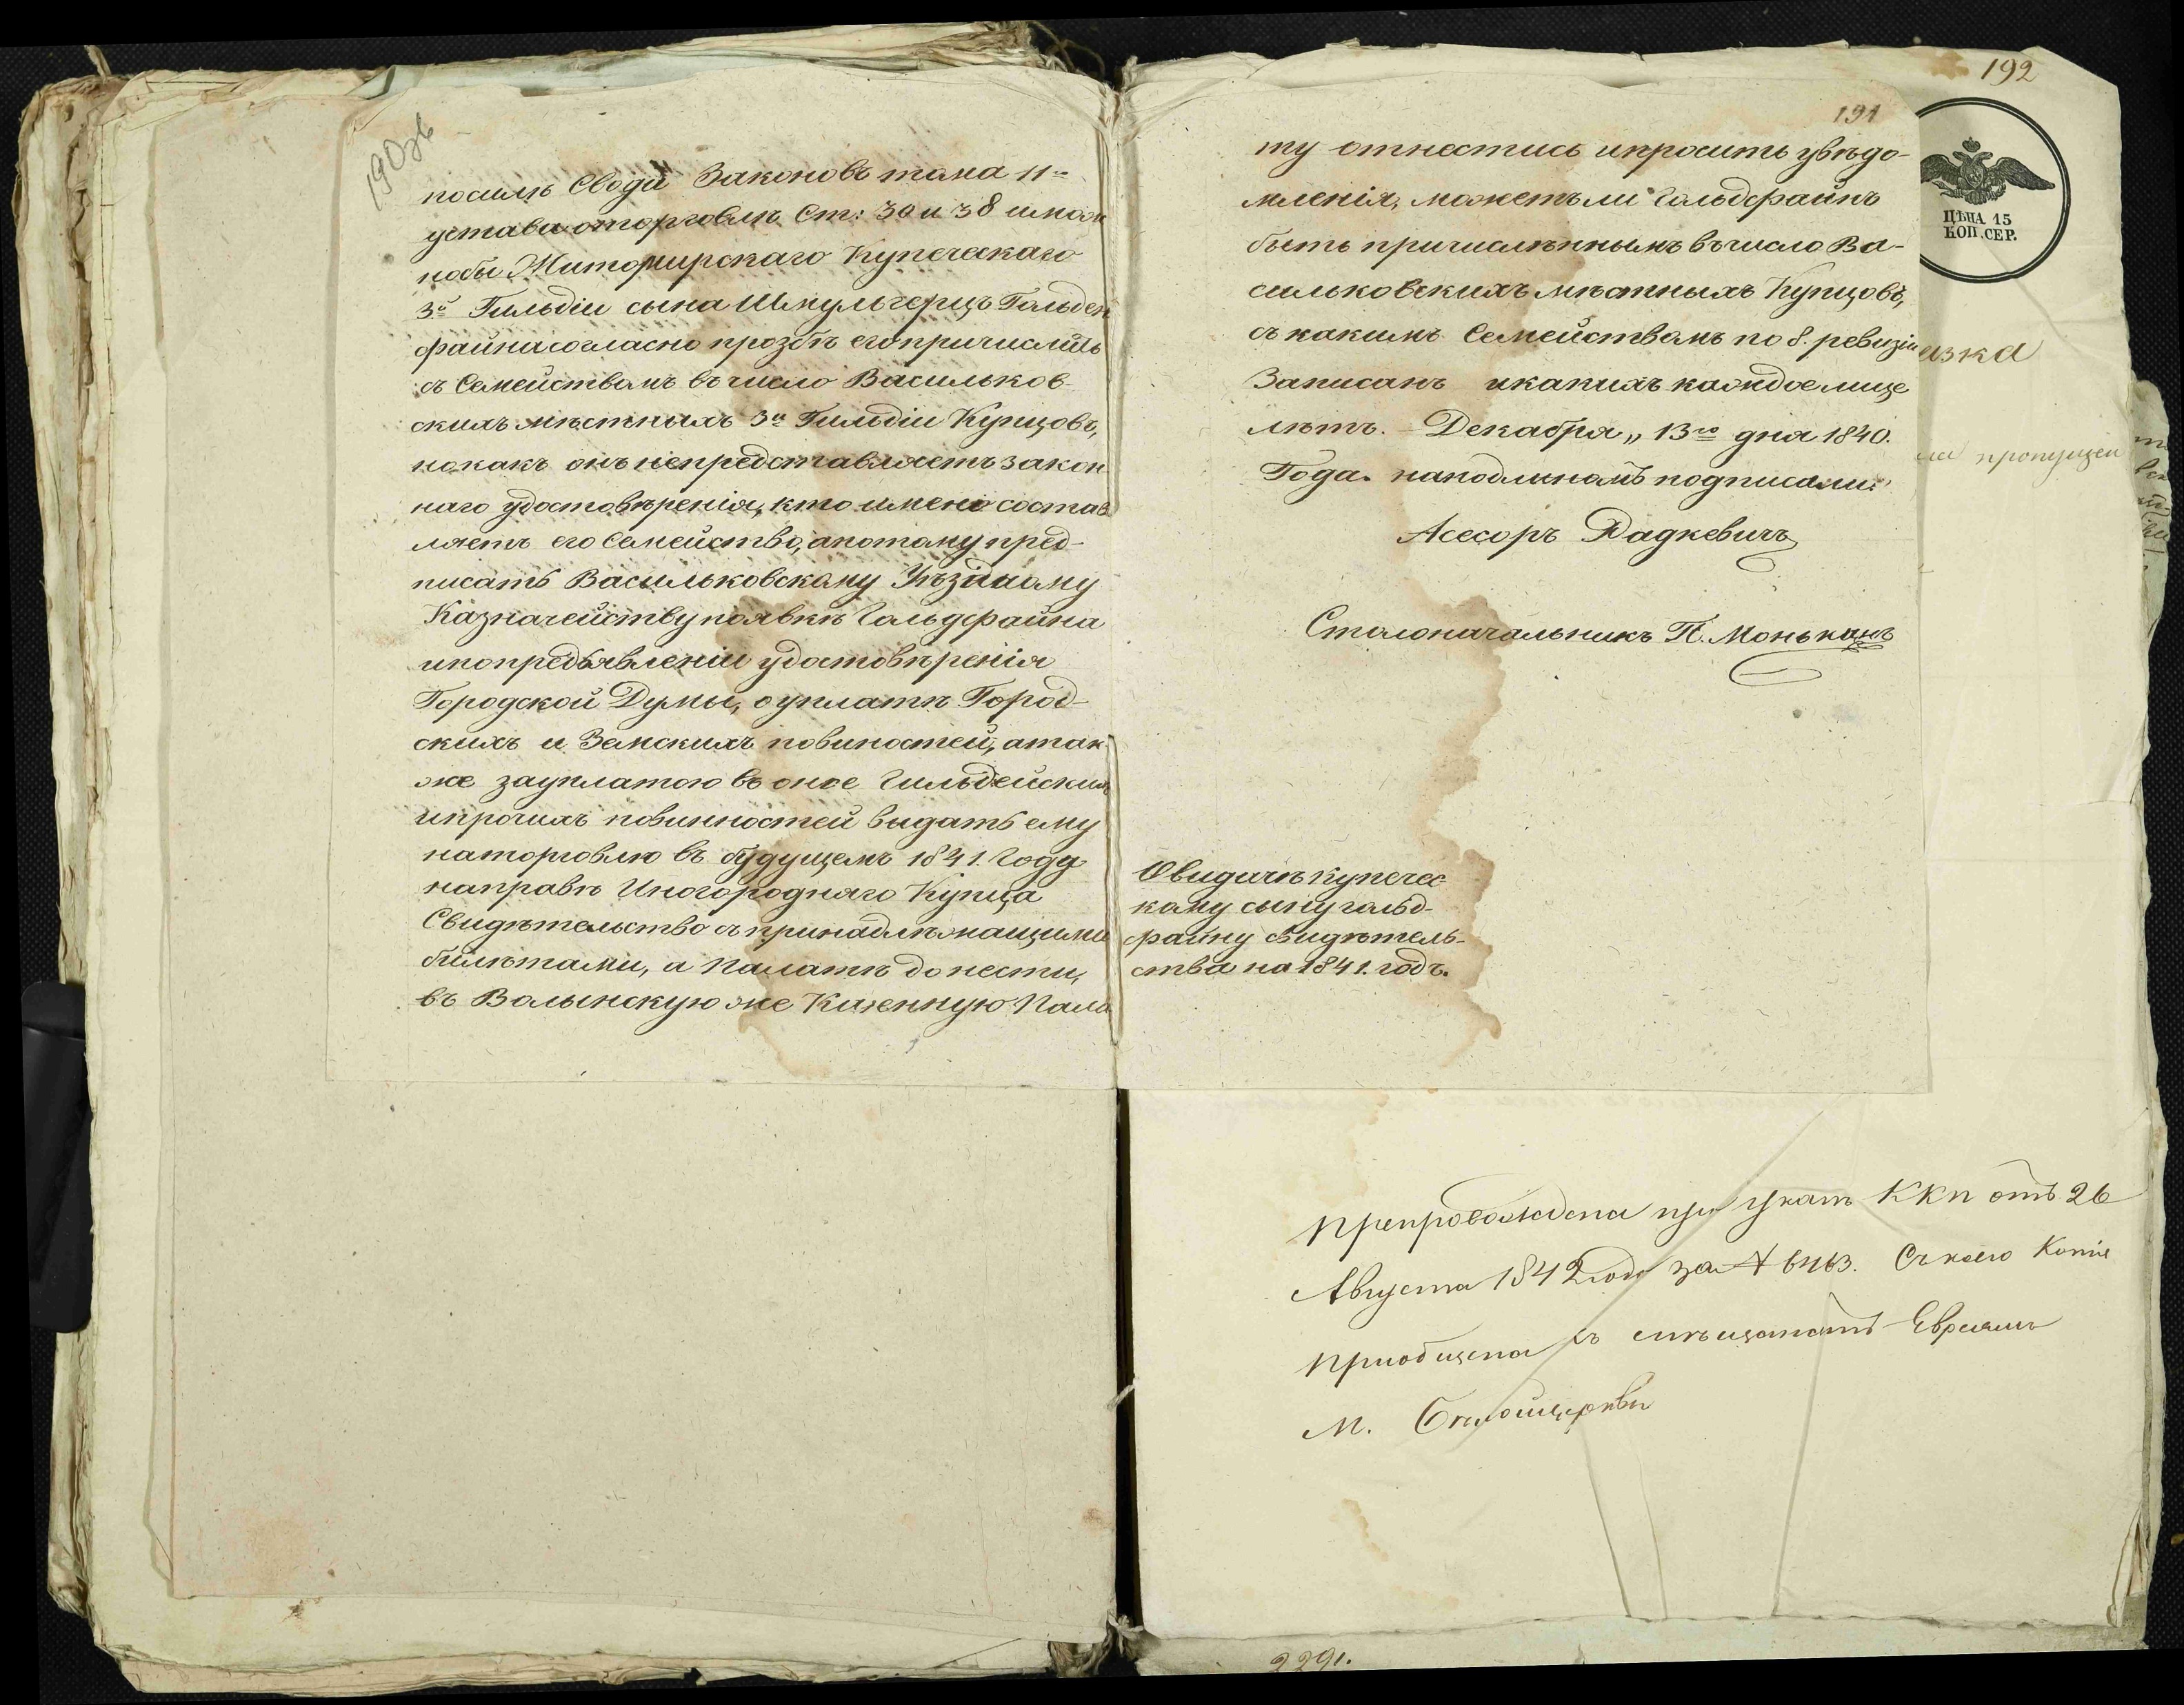 190зв
посилѣ Свода Законовъ тома 11го
устава оторговлѣ Ст: 30 и 38 имож
нобы Житомирскаго Купеческаго
3й Гильдіи сына Шмульгерца Гольден
файна согласно прозбѣ его причислить
съ Семействомъ въ число Васильков-
скихъ мѣстныхъ 3й Гильдіи Купцовъ,
но какъ онъ непредставляетъ закон
наго удостовѣренія, кто имено состав
ляетъ его Семейство, а потому пред-
писать Васильковскому Уѣздному
Казначейству появкѣ Гольдфайна
и по предъявленіи удостовѣренія
Городской Думы, о уплатѣ Город-
скихъ и Земскихъ повиностей, а так
же зауплатою въ оное Гильдейских
и прочихъ повинностей выдать ему
на торговлю въ будущемъ 1841. Году
на правѣ Иногородняго Купца
Свидѣтельство съ принадлежащими
билѣтами, а Палатѣ донести,
въ Волынскую же Казенную Пала
192
191
ту отнестись и просить увѣдо-
мленія, можетъ ли Гольдфайнъ
быть причисленнымъ въ число Ва-
сильковскихъ мѣстныхъ Купцовъ,
съ какимъ Семействомъ по 8. ревизіи
Записанъ и какихъ каждое лице
лѣтъ. Декабря „ 13го дня 1840.
Года. на подлиномъ подписали:
Асесоръ Радкевичъ
Столоначальникъ П. Монькацъ
О видачѣ купечес
кому сыну гольд-
файну свидѣтель-
ства на 1841. годъ.
ЦѢНА 15
КОП. СЕР.
изка
пропущен
Препровождена при указѣ ККП отъ 26
Августа 1842 года за № 6463. Съ коего Копія
Приобщена къ Евреямъ
М. Белойцеркви
2291.